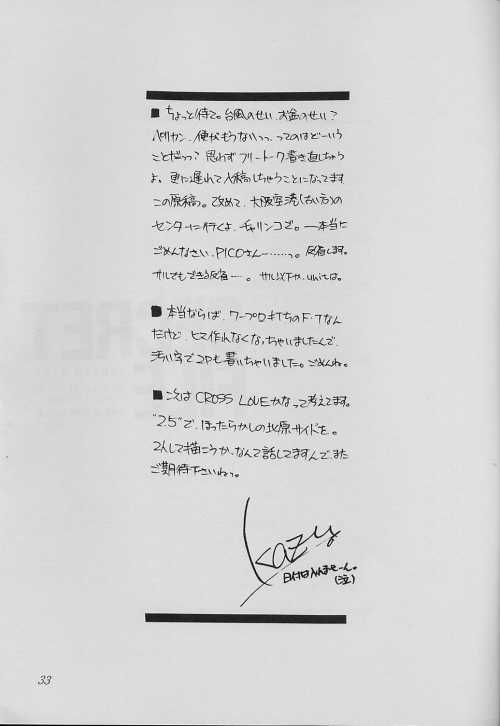 ■ ちょっと待て。台風のせい、お金のせい?
ペリカン、便がもうないっっ、ってのはどーいう
ことだっっ? 思わずフリートーク書き直しちゃう
よ。更に遅れて入稿しちゃうことになってます
この原稿っ。改めて、大阪空港(古い方)の
センターに行くよ、チャリンコで。―本当に
ごめんなさい、PICOさん―……っ。反省します。
サルでもできる反省―。サル以下か、unitは。
■ 本当ならば、ワープロ打ちのF・Tなん
だけど、ヒマ作れなくなっちゃいましたんで、
汚い字で2Pも書いちゃいました。ごめんね。
■ 次は CROSS LOVEかなって考えてます。
"25"で、ほったらかしの北原サイドを。
2人して描こうか、なんて話してますんで、また
ご期待下さいねっ。
Kazu
日付は入れませーん。
(泣)
33